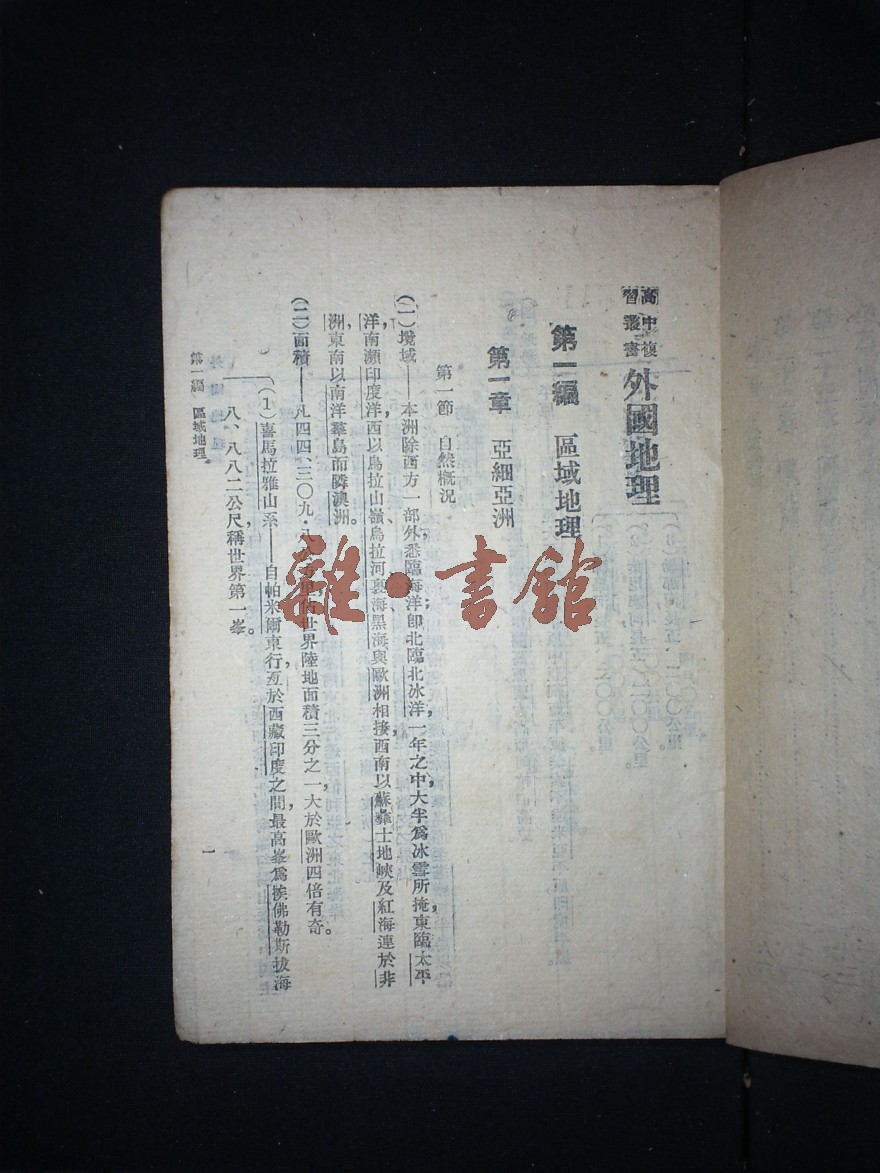 高中複習叢書
外國地理
第一編 區域地理
第一章 亞細亞洲
第一節 自然概況
(一)境域——本洲除西方一部外，悉臨海洋；即北臨北冰洋，一年之中大半爲冰雪所掩，東臨太平
洋，南瀕印度洋，西以烏拉山嶺、烏拉河、裏海、黑海與歐洲相接，西南以蘇彝士地峽及紅海連於非
洲，東南以南洋羣島而隣澳洲。
(二)面積——凡四四、三〇九・ 世界陸地面積三分之一，大於歐洲四倍有奇。
(1)喜馬拉雅山系——自帕米爾東行，亙於西藏印度之間，最高峯爲挨佛勒斯，拔海
八、八八二公尺，稱世界第一峯。
第一編 區域地理
一
雜・書館